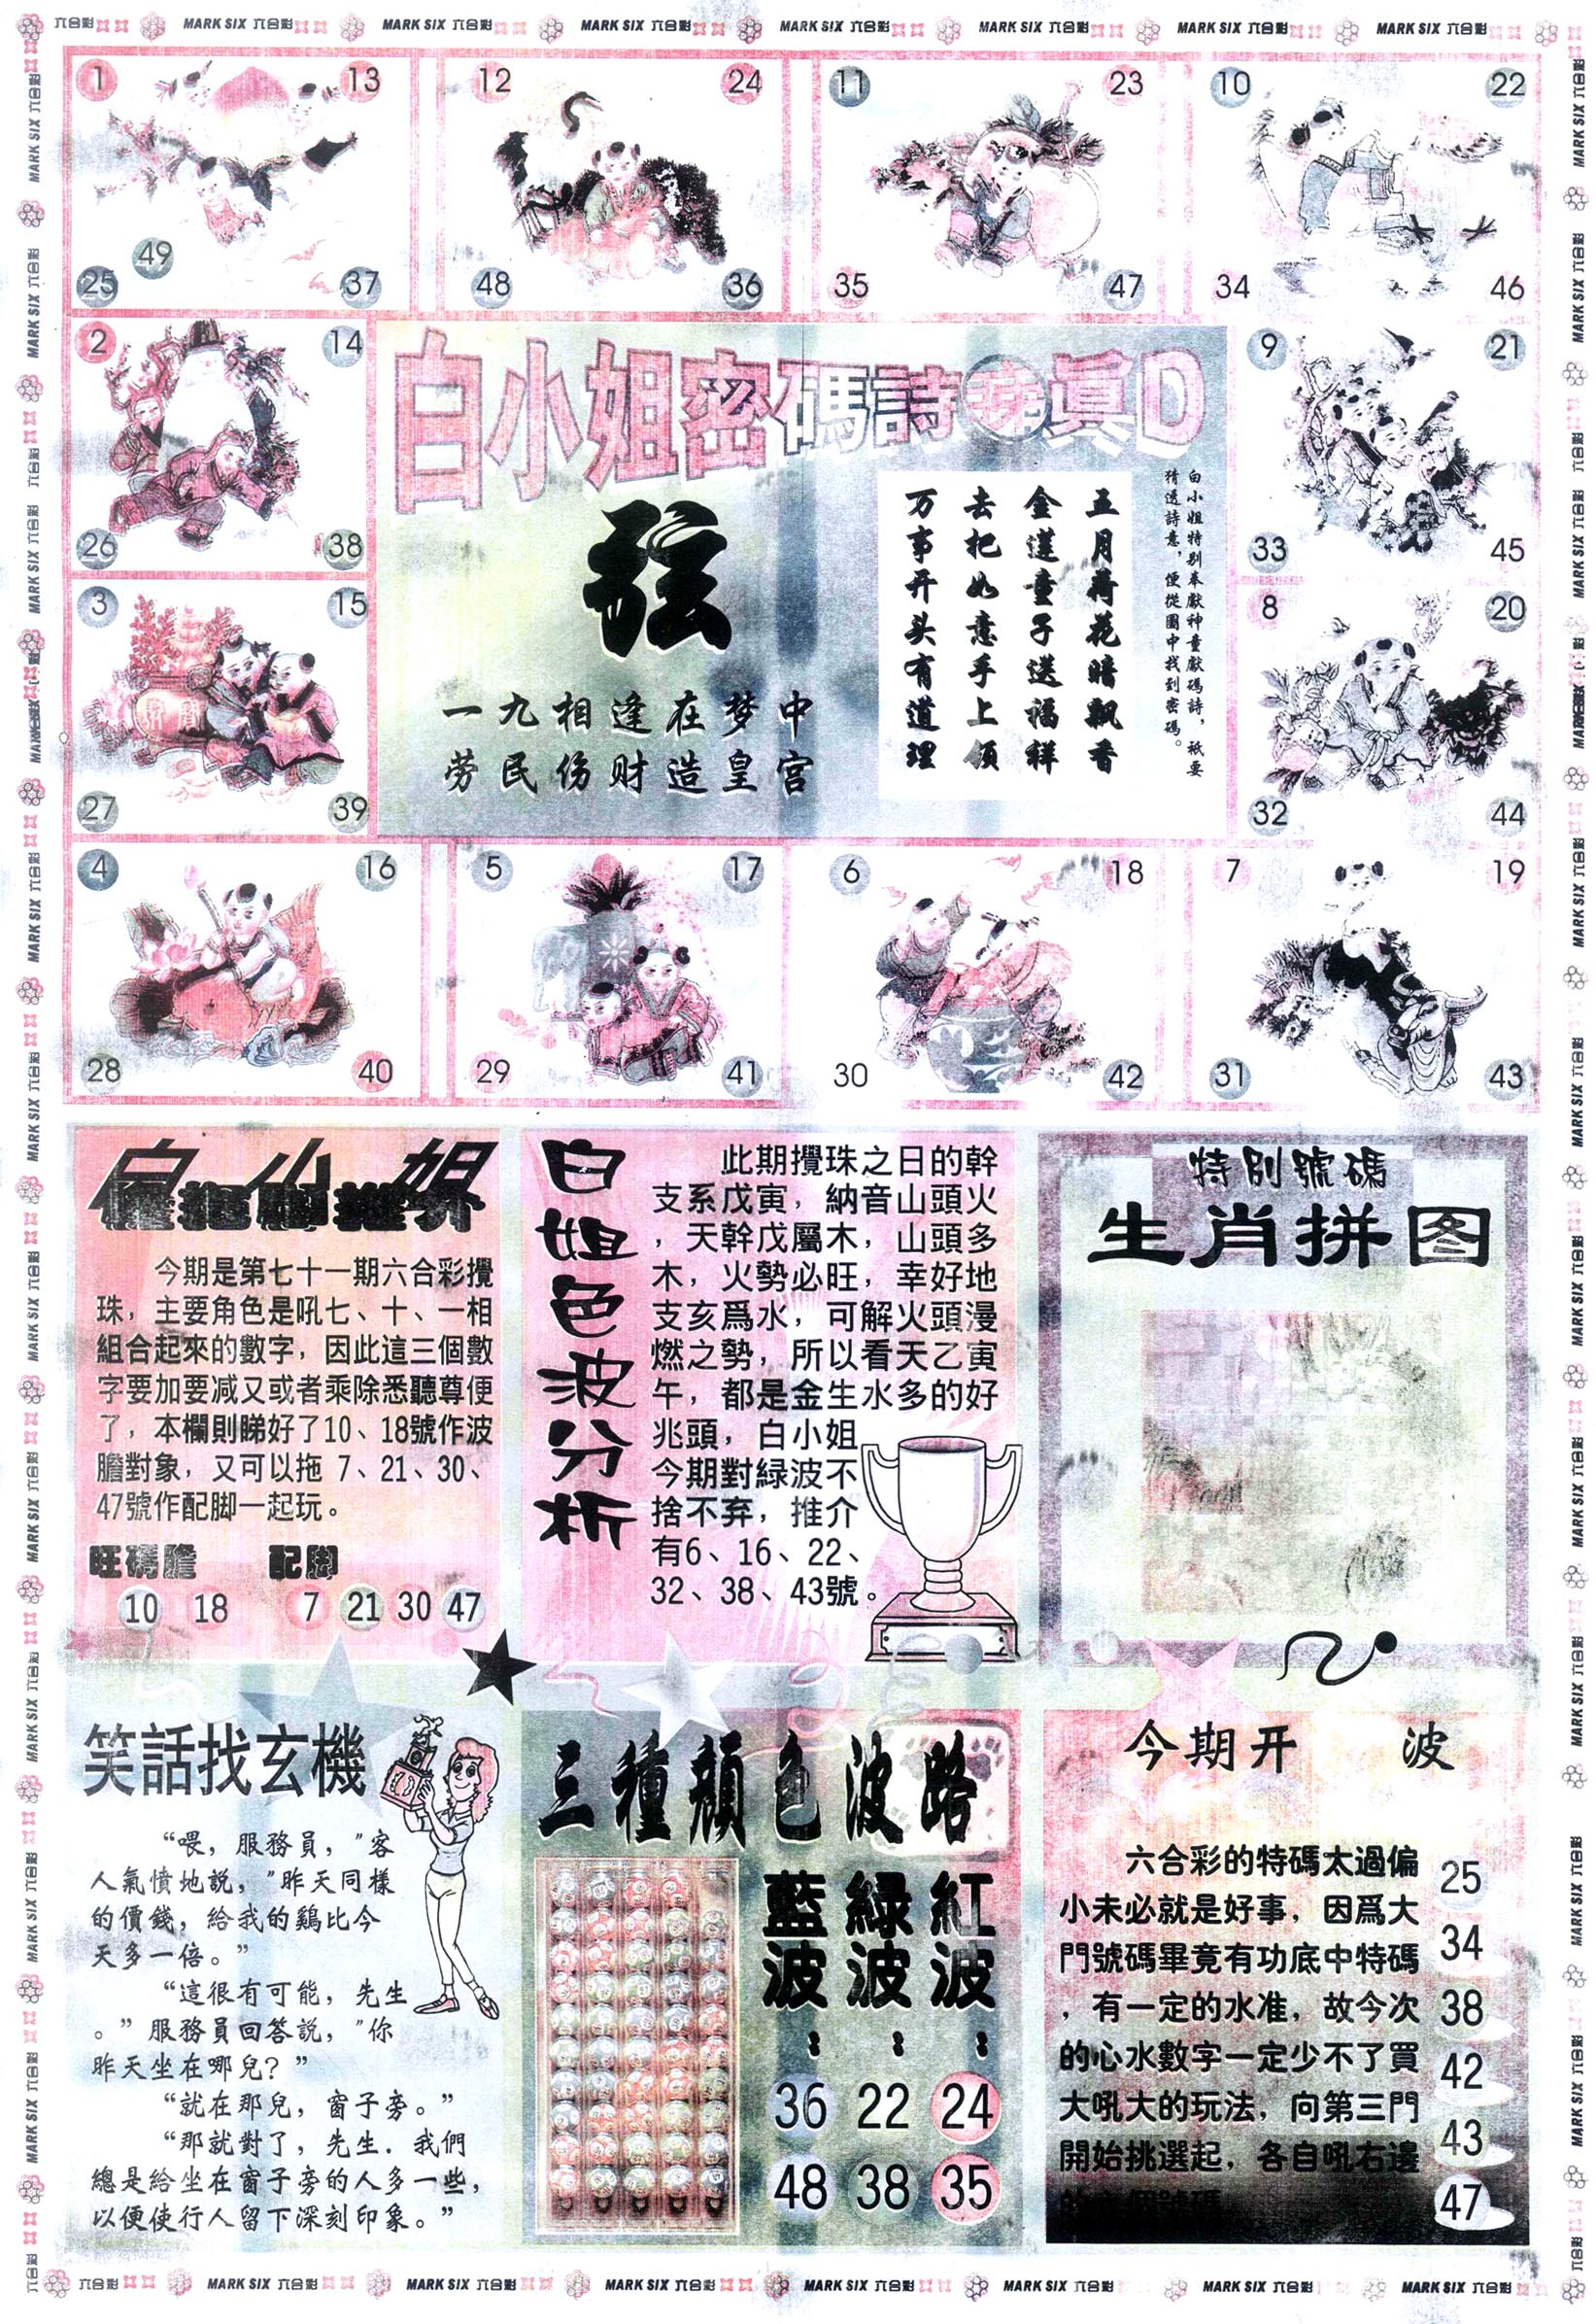 六合彩 MARK SIX 六合彩 MARK SIX 六合彩 MARK SIX 六合彩 MARK SIX 六合彩 MARK SIX 六合彩 MARK SIX 六合彩 MARK SIX 六合彩
1 13 12 24 11 23 10 22
49
25 37 48 36 35 47 34 46
2 14
26 38
3 15
27 39
白小姐密碼詩 真D
弦
一九相逢在梦中
劳民伤财造皇宫
白小姐特别奉獻神童獻碼詩，祇要
猜透詩意，便從圖中找到密碼。
五月荷花暗飘香
金莲童子送福祥
去把如意手上领
万事开头有道理
9 21
33 45
8 20
32 44
4 16 5 17 6 18 7 19
28 40 29 41 30 42 31 43
白小姐
今期是第七十一期六合彩攪
珠，主要角色是吼七、十、一相
組合起來的數字，因此這三個數
字要加要减又或者乘除悉聽尊便
了，本欄則睇好了10、18號作波
膽對象，又可以拖 7、21、30、
47號作配脚一起玩。
旺碼膽 配脚
10 18 7 21 30 47
白姐色波分析
此期攪珠之日的幹
支系戊寅，納音山頭火
，天幹戊屬木，山頭多
木，火勢必旺，幸好地
支亥爲水，可解火頭漫
燃之勢，所以看天乙寅
午，都是金生水多的好
兆頭，白小姐
今期對緑波不
捨不弃，推介
有6、16、22、
32、38、43號。
特别號碼
生肖拼图
笑話找玄機
“喂，服務員，”客
人氣憤地説，”昨天同樣
的價錢，給我的鷄比今
天多一倍。”
“這很有可能，先生
。”服務員回答説，”你
昨天坐在哪兒？”
“就在那兒，窗子旁。”
“那就對了，先生．我們
總是給坐在窗子旁的人多一些，
以便使行人留下深刻印象。”
三種顔色波路
藍波： 緑波： 紅波：
36 22 24
48 38 35
今期开 波
六合彩的特碼太過偏
小未必就是好事，因爲大
門號碼畢竟有功底中特碼
，有一定的水准，故今次
的心水數字一定少不了買
大吼大的玩法，向第三門
開始挑選起，各自吼右邊
25
34
38
42
43
47
六合彩 MARK SIX 六合彩 MARK SIX 六合彩 MARK SIX 六合彩 MARK SIX 六合彩 MARK SIX 六合彩 MARK SIX 六合彩 MARK SIX 六合彩